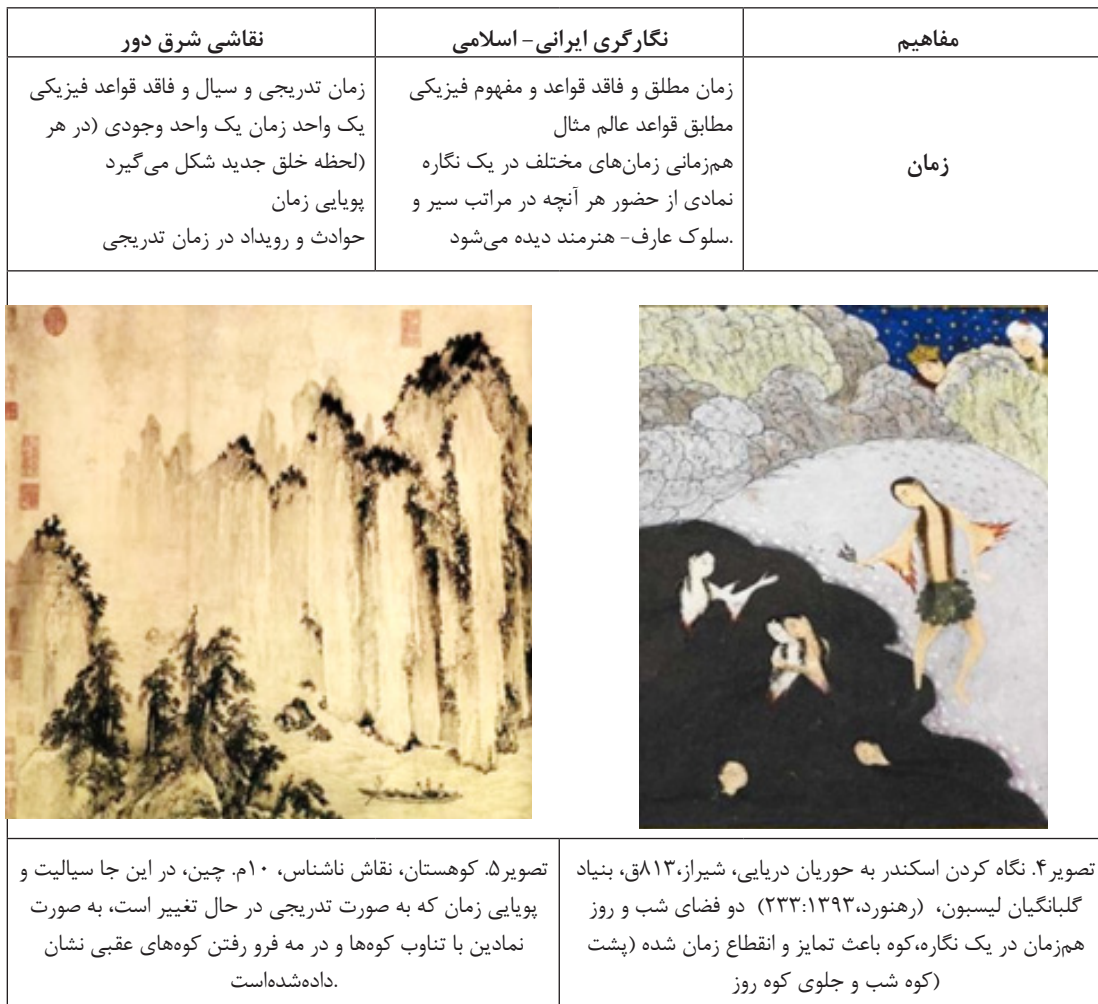 مفاهیم
نگارگری ایرانی- اسلامی
نقاشی شرق دور
زمان
زمان مطلق و فاقد قواعد و مفهوم فیزیکی
مطابق قواعد عالم مثال
هم‌زمانی زمان‌های مختلف در یک نگاره
نمادی از حضور هر آنچه در مراتب سیر و
.سلوک عارف- هنرمند دیده می‌شود
زمان تدریجی و سیال و فاقد قواعد فیزیکی
یک واحد زمان یک واحد وجودی (در هر
(لحظه خلق جدید شکل می‌گیرد
پویایی زمان
حوادث و رویداد در زمان تدریجی
تصویر۴. نگاه کردن اسکندر به حوریان دریایی، شیراز،۸۱۳ق، بنیاد
گلبانگیان لیسبون، (رهنورد،۲۳۳:۱۳۹۳) دو فضای شب و روز
هم‌زمان در یک نگاره،کوه باعث تمایز و انقطاع زمان شده (پشت
(کوه شب و جلوی کوه روز
تصویر۵. کوهستان، نقاش ناشناس، ۱۰م. چین، در این جا سیالیت و
پویایی زمان که به صورت تدریجی در حال تغییر است، به صورت
نمادین با تناوب کوه‌ها و در مه فرو رفتن کوه‌های عقبی نشان
.داده‌شده‌است